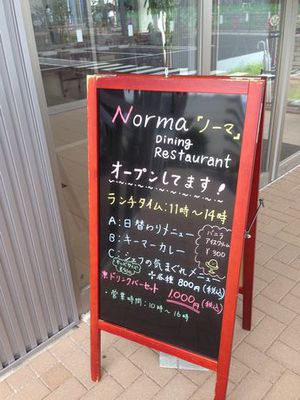 Norma「ノーマ」
Dining
Restaurant
オープンしてます!
ランチタイム:11時〜14時
A:日替わりメニュー
B:キーマーカレー
C:シェフの気まぐれメニュー
バニラ
アイスクリーム
¥300
各種 800円(税込)
ドリンクバーセット 1,000円(税込)
・営業時間:10時〜16時